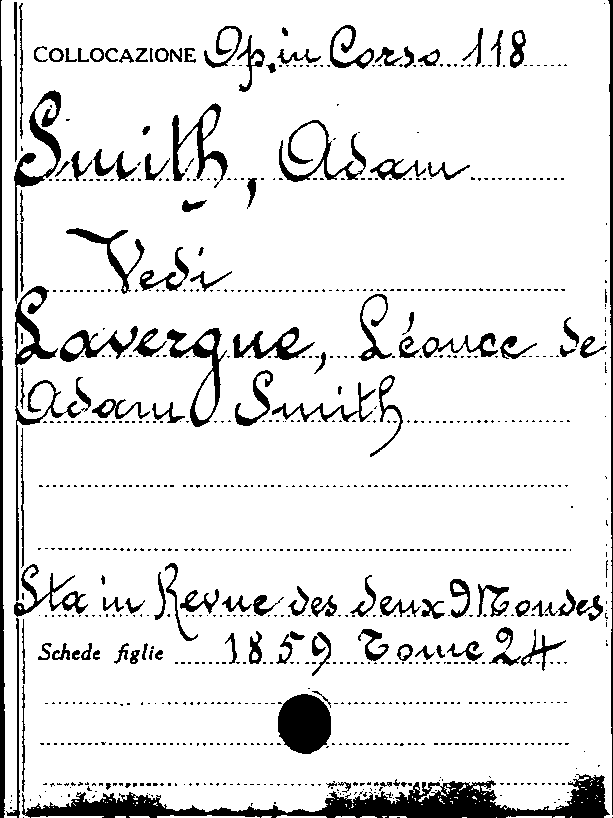 COLLOCAZIONE Op. in Corso 118
Smith, Adam
Vedi
Lavergne, Léonce de
Adam Smith
Sta in Revue des deux Mondes
Schede figlie 1859 Tome 24